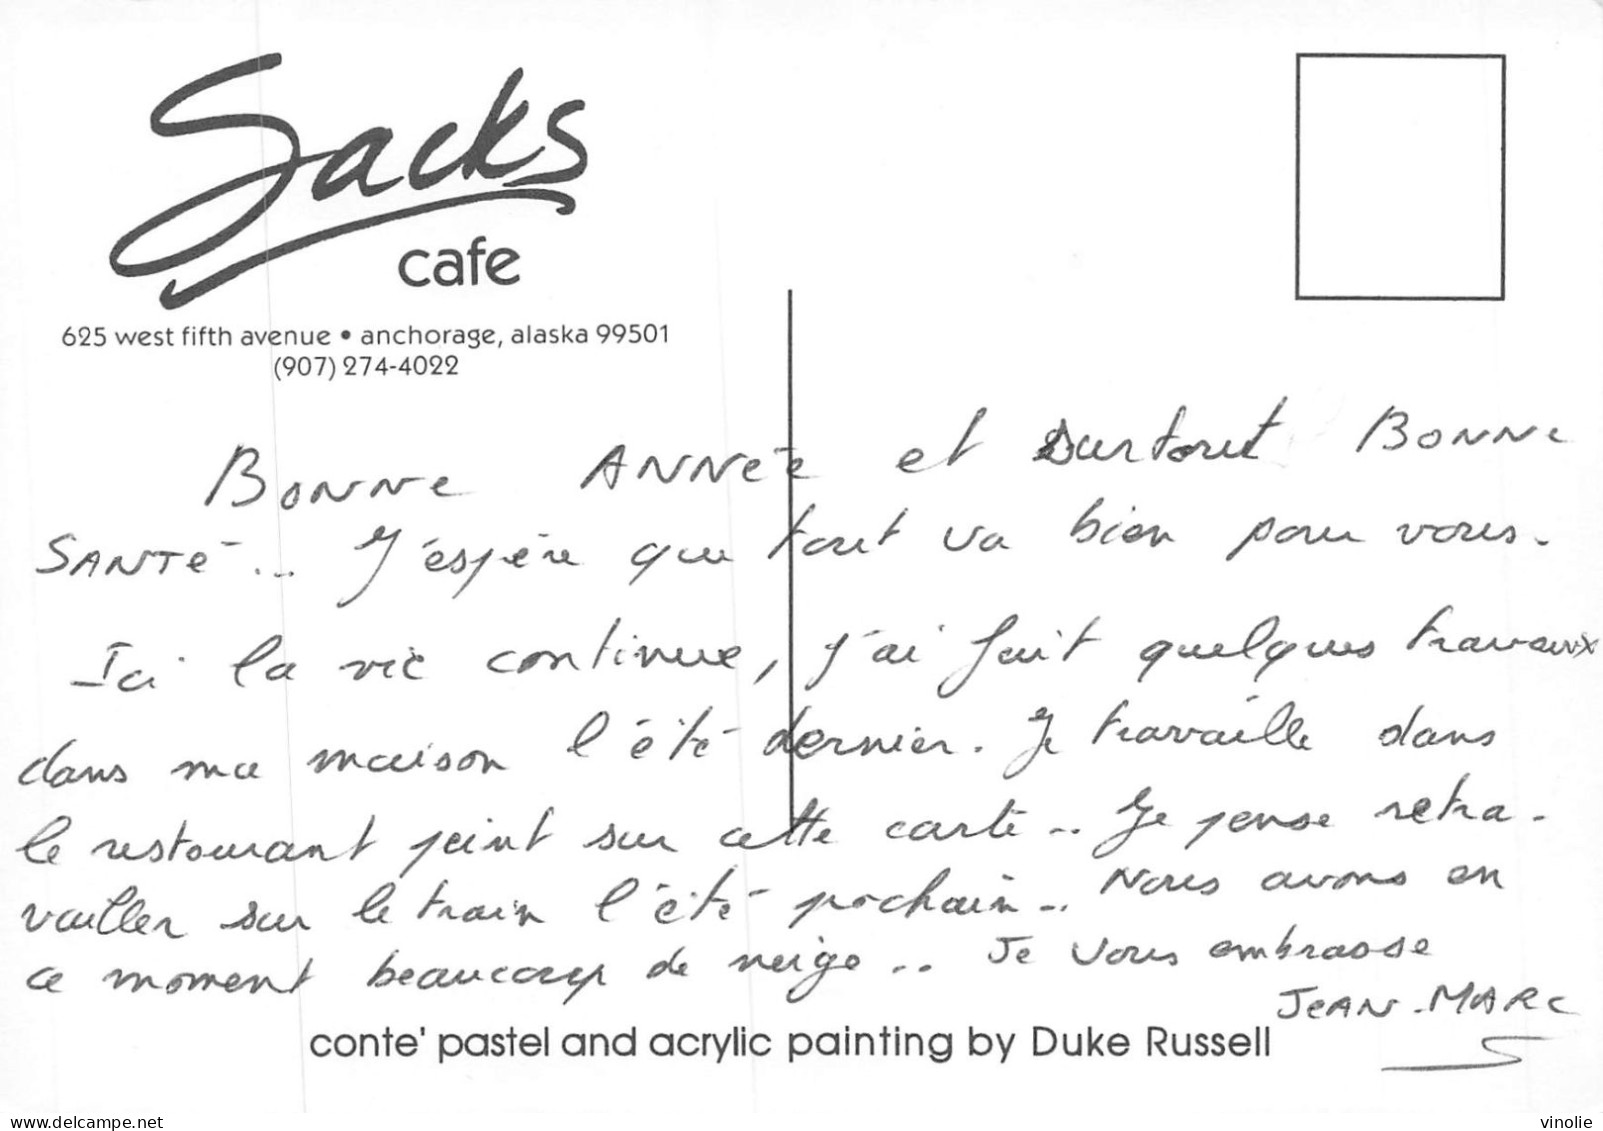 Sacks
cafe
625 west fifth avenue • anchorage, alaska 99501
(907) 274-4022
BONNE ANNÉE et surtout BONNE
SANTÉ... J'espère que tout va bien pour vous.
Ici la vie continue, j'ai fait quelques travaux
dans ma maison l'été dernier. Je travaille dans
le restaurant peint sur cette carte... Je pense retra-
vailler sur le train l'été prochain... Nous avons en
ce moment beaucoup de neige... Je vous embrasse
JEAN-MARC
conte' pastel and acrylic painting by Duke Russell
vinolie